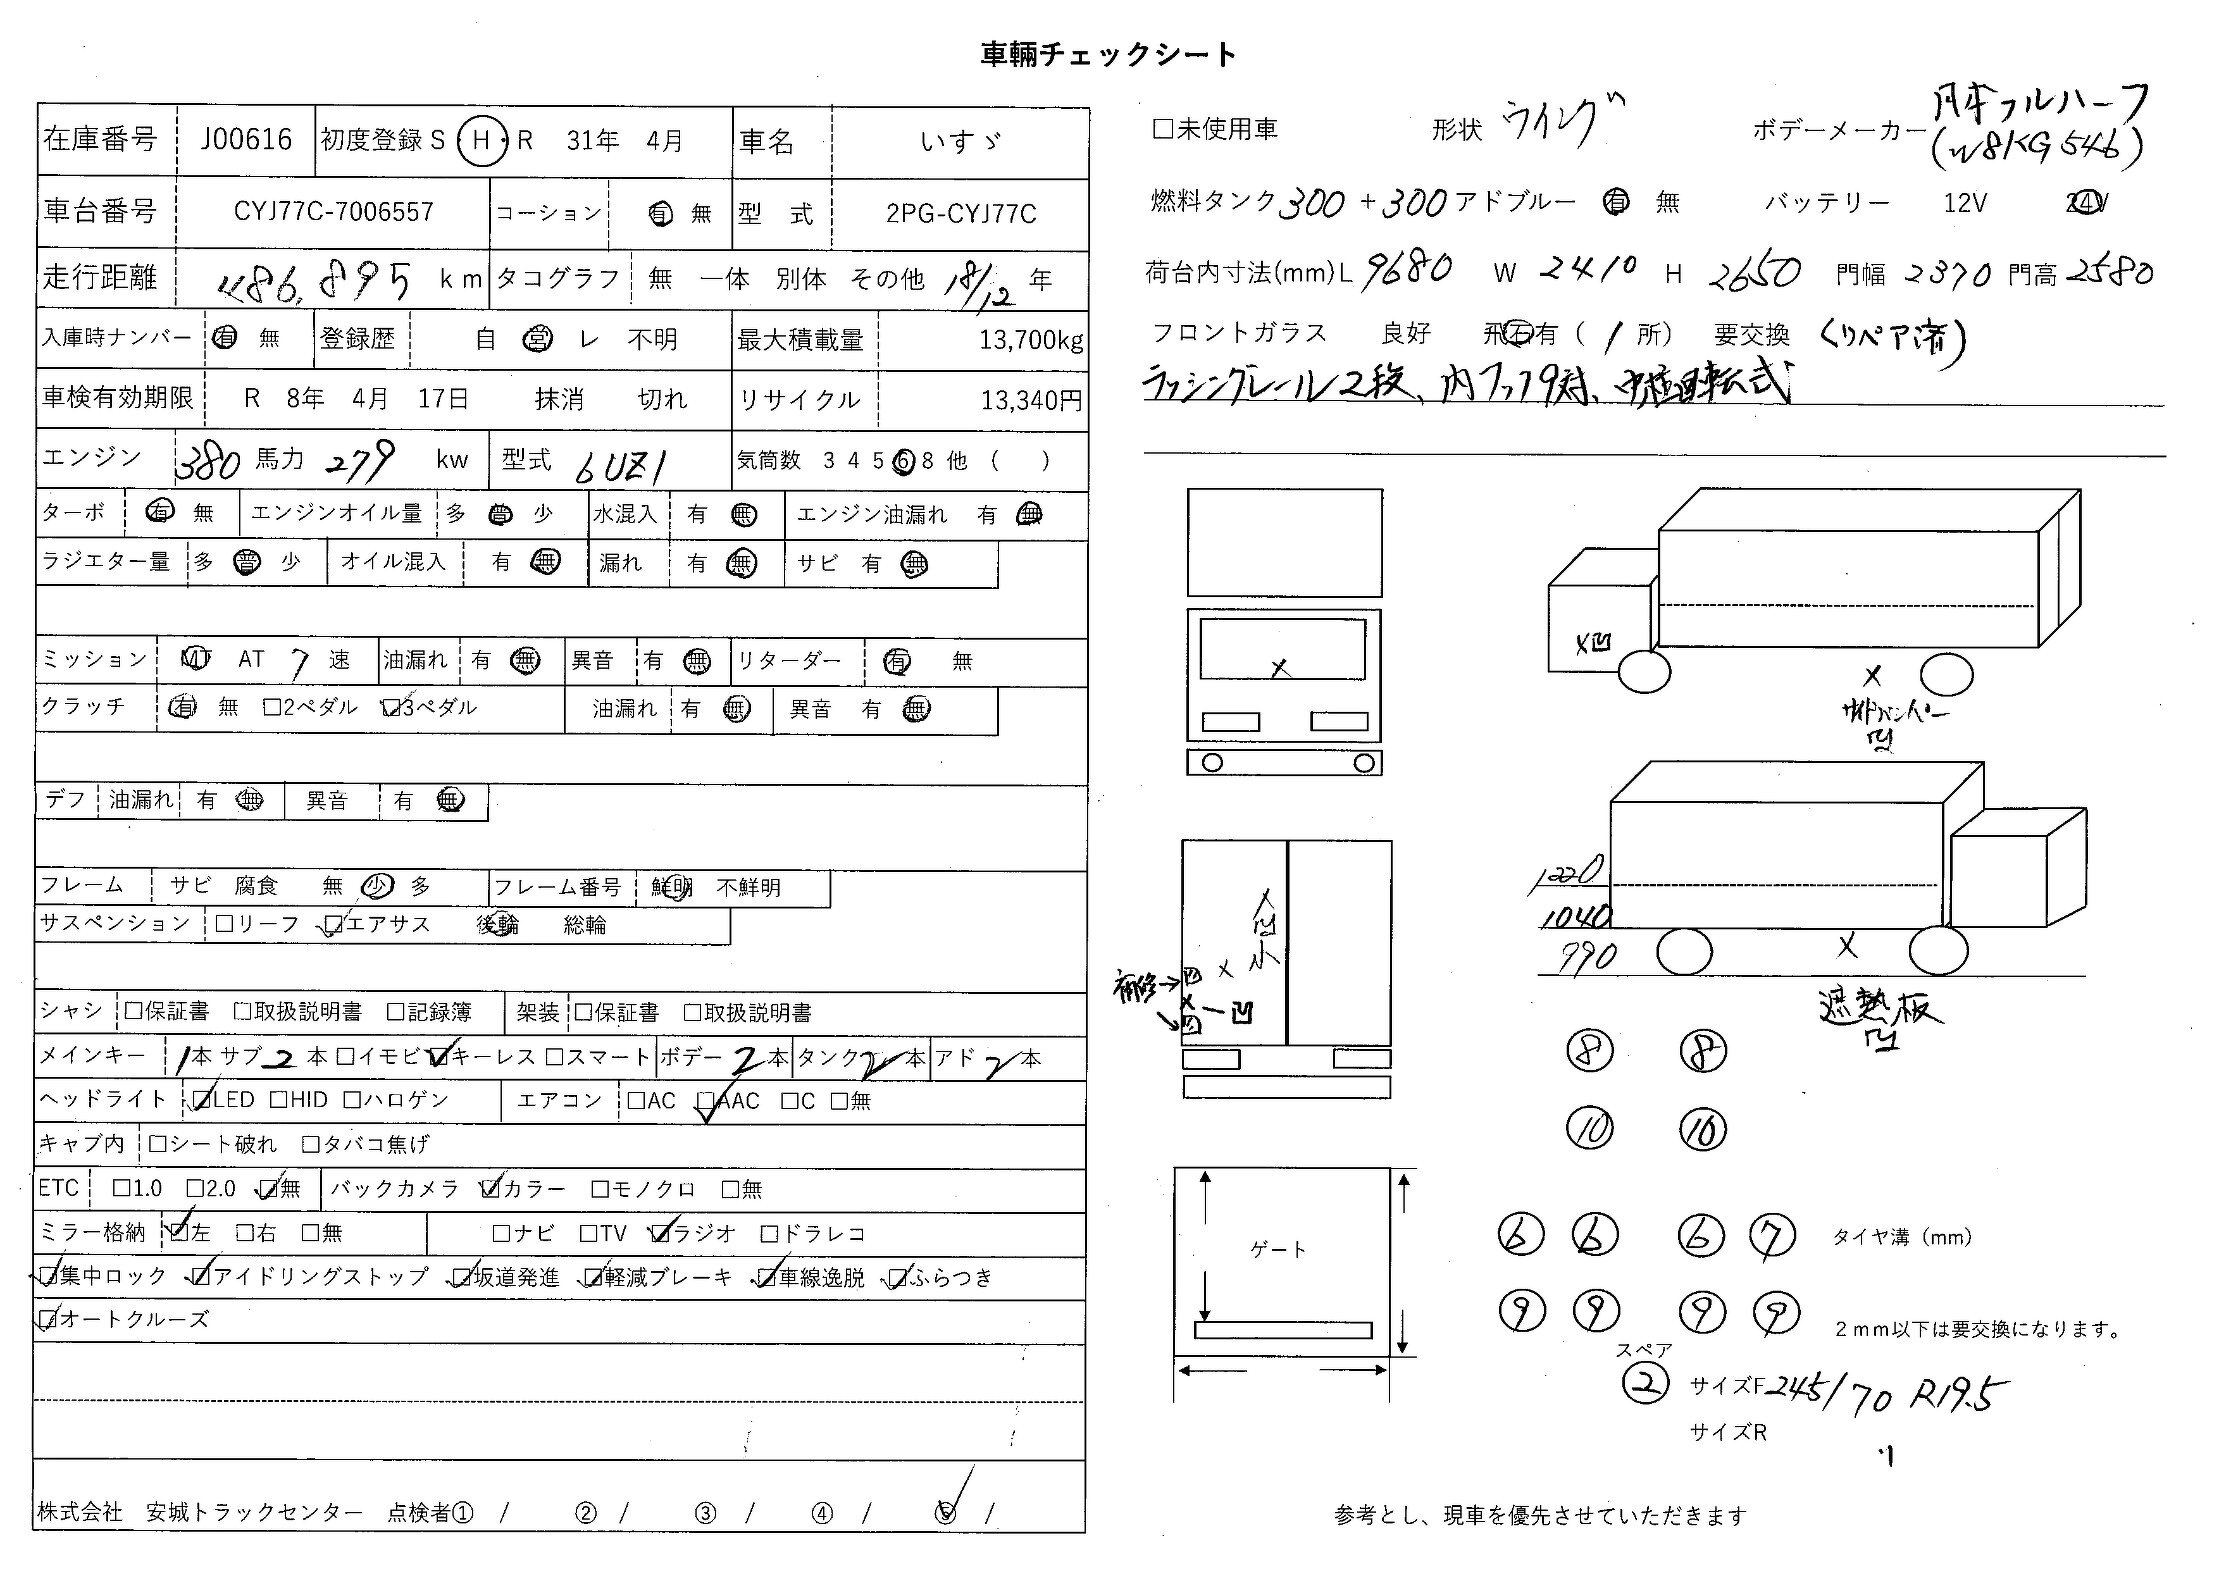 車輛チェックシート
在庫番号 J00616 初度登録 S・H・R 31年 4月 車名 いすゞ
車台番号 CYJ77C-7006557 コーション 有 無 型 式 2PG-CYJ77C
走行距離 486,895 km タコグラフ 無 一体 別体 その他 18/12 年
入庫時ナンバー 有 無 登録歴 自 営 レ 不明 最大積載量 13,700kg
車検有効期限 R 8年 4月 17日 抹消 切れ リサイクル 13,340円
エンジン 380 馬力 279 kw 型式 6UZ1 気筒数 3 4 5 6 8 他 ( )
ターボ 有 無 エンジンオイル量 多 普 少 水混入 有 無 エンジン油漏れ 有 無
ラジエター量 多 普 少 オイル混入 有 無 漏れ 有 無 サビ 有 無
ミッション MT AT 7 速 油漏れ 有 無 異音 有 無 リターダー 有 無
クラッチ 有 無 □2ペダル ☑3ペダル 油漏れ 有 無 異音 有 無
デフ 油漏れ 有 無 異音 有 無
フレーム サビ 腐食 無 少 多 フレーム番号 鮮明 不鮮明
サスペンション □リーフ ☑エアサス 後輪 総輪
シャシ □保証書 □取扱説明書 □記録簿 架装 □保証書 □取扱説明書
メインキー 1本 サブ 2 本 □イモビ ☑キーレス □スマート ボデー 2 本 タンク 2 本 アド 2 本
ヘッドライト ☑LED □HID □ハロゲン エアコン □AC ☑AAC □C □無
キャブ内 □シート破れ □タバコ焦げ
ETC □1.0 □2.0 ☑無 バックカメラ ☑カラー □モノクロ □無
ミラー格納 ☑左 □右 □無 □ナビ □TV ☑ラジオ □ドラレコ
☑集中ロック ☑アイドリングストップ ☑坂道発進 ☑軽減ブレーキ ☑車線逸脱 ☑ふらつき
☑オートクルーズ
株式会社 安城トラックセンター 点検者① / ② / ③ / ④ / ⑤ /
□未使用車 形状 ウイング ボデーメーカー 日本フルハーフ
(W8KG546)
燃料タンク 300 + 300 アドブルー 有 無 バッテリー 12V 24V
荷台内寸法(mm) L 9680 W 2410 H 2650 門幅 2370 門高 2580
フロントガラス 良好 飛石有 ( 1 所) 要交換 (リペア済)
ラッシングレール2段、内フック9対、中柱回転式
X凹
X
X
サイドバンパー
凹
1220
1040
990
X
遮熱板
凹
X凹小
補修→凹 X
X-凹
凹
⑧ ⑧
⑩ ⑩
⑥ ⑥ ⑥ ⑦ タイヤ溝（mm）
⑨ ⑨ ⑨ ⑨ 2mm以下は要交換になります。
ゲート
スペア
② サイズF 245/70 R19.5
サイズR 〃
参考とし、現車を優先させていただきます